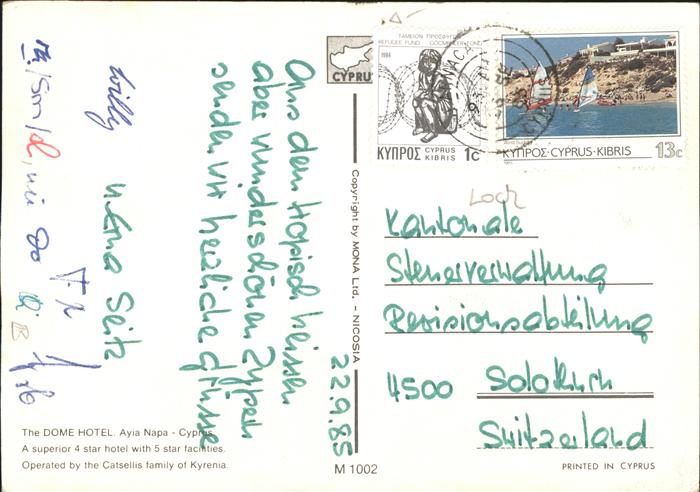 22.9.85
Aus dem tropisch heissen
aber wunderschönen Zypern
senden wir herzliche Grüsse
Willy
u. Erna Seitz
The DOME HOTEL. Ayia Napa - Cyprus
A superior 4 star hotel with 5 star facilities.
Operated by the Catsellis family of Kyrenia.
CYPRUS
Copyright by MONA Ltd. - NICOSIA
M 1002
ΤΑΜΕΙΟΝ ΠΡΟΣΦΥΓΩΝ
REFUGEE FUND GÖÇMENLER FONU
1984
ΚΥΠΡΟΣ CYPRUS KIBRIS 1c
ΚΥΠΡΟΣ·CYPRUS·KIBRIS 13c
1985
Loch
Kantonale
Steuerverwaltung
Revisionsabteilung
4500 Solothurn
Switzerland
PRINTED IN CYPRUS